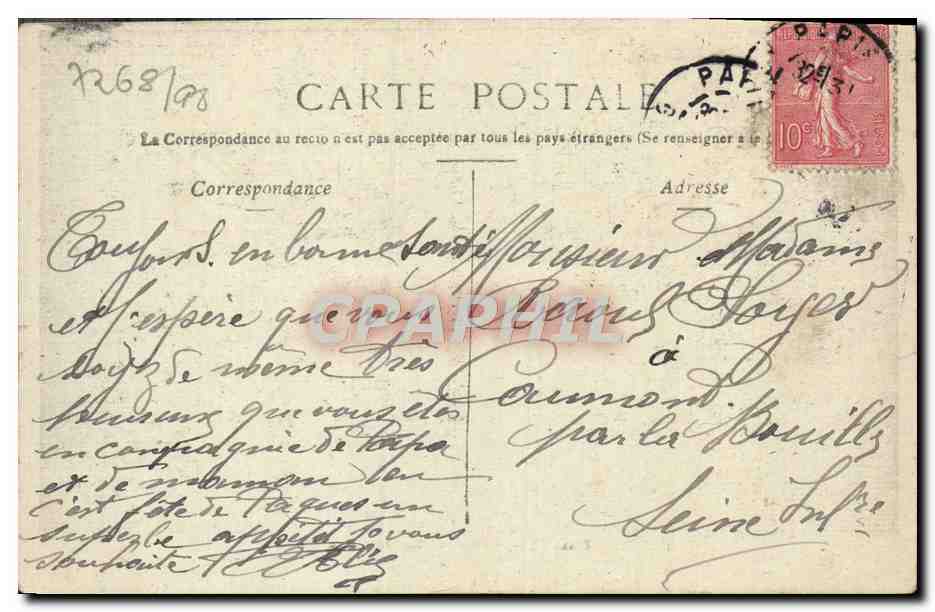 7268/98
CARTE POSTALE
La Correspondance au recto n'est pas acceptée par tous les pays étrangers (Se renseigner a le
PARIS
PARIS
10c
Correspondance
Adresse
Toujours en bonne santé
et j'espère que vous
soyez de même très
heureux que vous êtes
en compagnie de Papa
et de maman en
c'est fete de Paques un
superbe appétit je vous
souhaite
Monsieur Madame
Raoul
à
Caumont
par la Bouille
Seine Infre
CPAPHIL